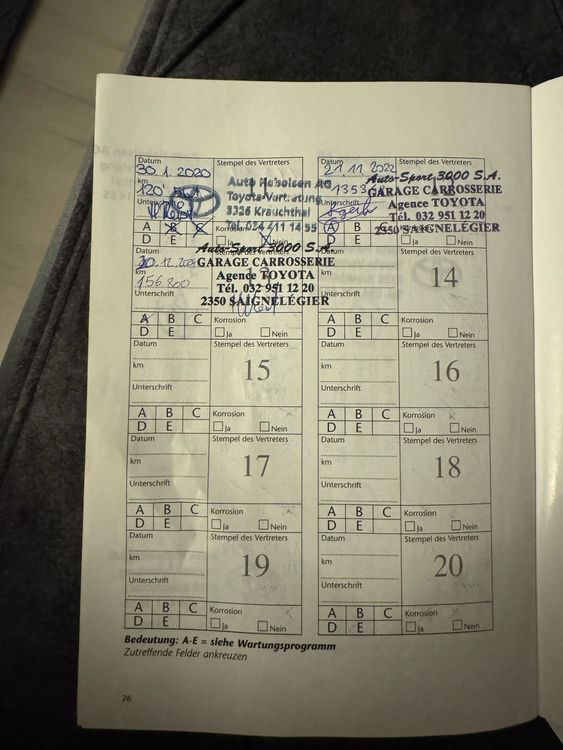 Datum
Stempel des Vertreters
30.1.2020
km
120'
Auto Hebeisen AG
Toyota-Vertretung
Unterschrift
3326 Krauchthal
Tel. 034 411 14 55
A B C
D E
Datum
Stempel des Vertreters
21.11.2022
Auto-Sport 3000 S.A.
GARAGE CARROSSERIE
Agence TOYOTA
Tél. 032 951 12 20
2350 SAIGNELÉGIER
A B C
D E
Auto-Sport 3000 S.A.
GARAGE CARROSSERIE
Agence TOYOTA
Tél. 032 951 12 20
2350 SAIGNELÉGIER
km
156.800
Unterschrift
A B C Korrosion
D E Ja Nein
14
A B C Korrosion
D E Ja Nein
Datum
Stempel des Vertreters
km
15
Unterschrift
A B C Korrosion
D E Ja Nein
Datum
Stempel des Vertreters
km
16
Unterschrift
A B C Korrosion
D E Ja Nein
Datum
Stempel des Vertreters
km
17
Unterschrift
A B C Korrosion
D E Ja Nein
Datum
Stempel des Vertreters
km
18
Unterschrift
A B C Korrosion
D E Ja Nein
Datum
Stempel des Vertreters
km
19
Unterschrift
A B C Korrosion
D E Ja Nein
Datum
Stempel des Vertreters
km
20
Unterschrift
A B C Korrosion
D E Ja Nein
Bedeutung: A-E = siehe Wartungsprogramm
Zutreffende Felder ankreuzen
26